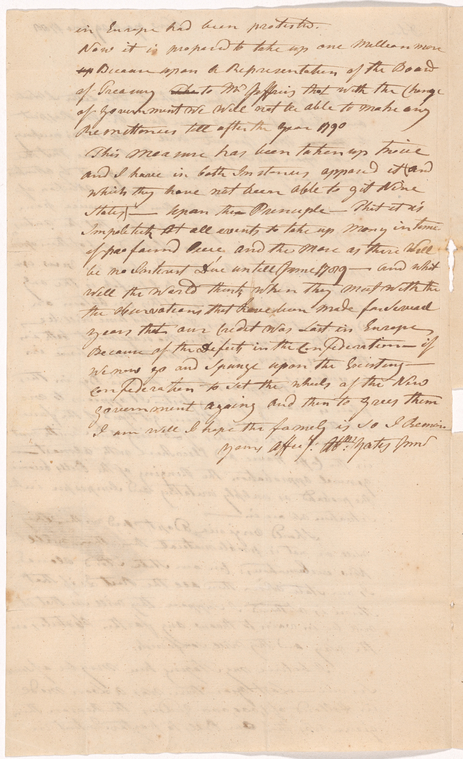 in Europe had been protested.
Now it is proposed to take up one Million more
Because upon a Representation of the Board
of Treasury to Mr Jefferies that with the Change
of Government we will not be able to make any
Remittances till after the year 1790
This Measure has been taken up twice
and I have in both Instances opposed it and
which they have not been able to git Nine
States — upon the Principle — That it is
Impolitick at all events to take up Money in time
of profound Peace and the More as there Will
be no Interest Due untill June 1789 — and what
will the World think when they meet with the
the observations that have been made for Several
years that our Credit was Lost in Europe
Because of the Defects in the Confederation — if
we now go and Spunge upon the Existing
Confederation to Set the wheels of the New
government agoing and then to grees them
I am well I hope the family is So I Remain
yours Affecy. Abm. Yates Junr